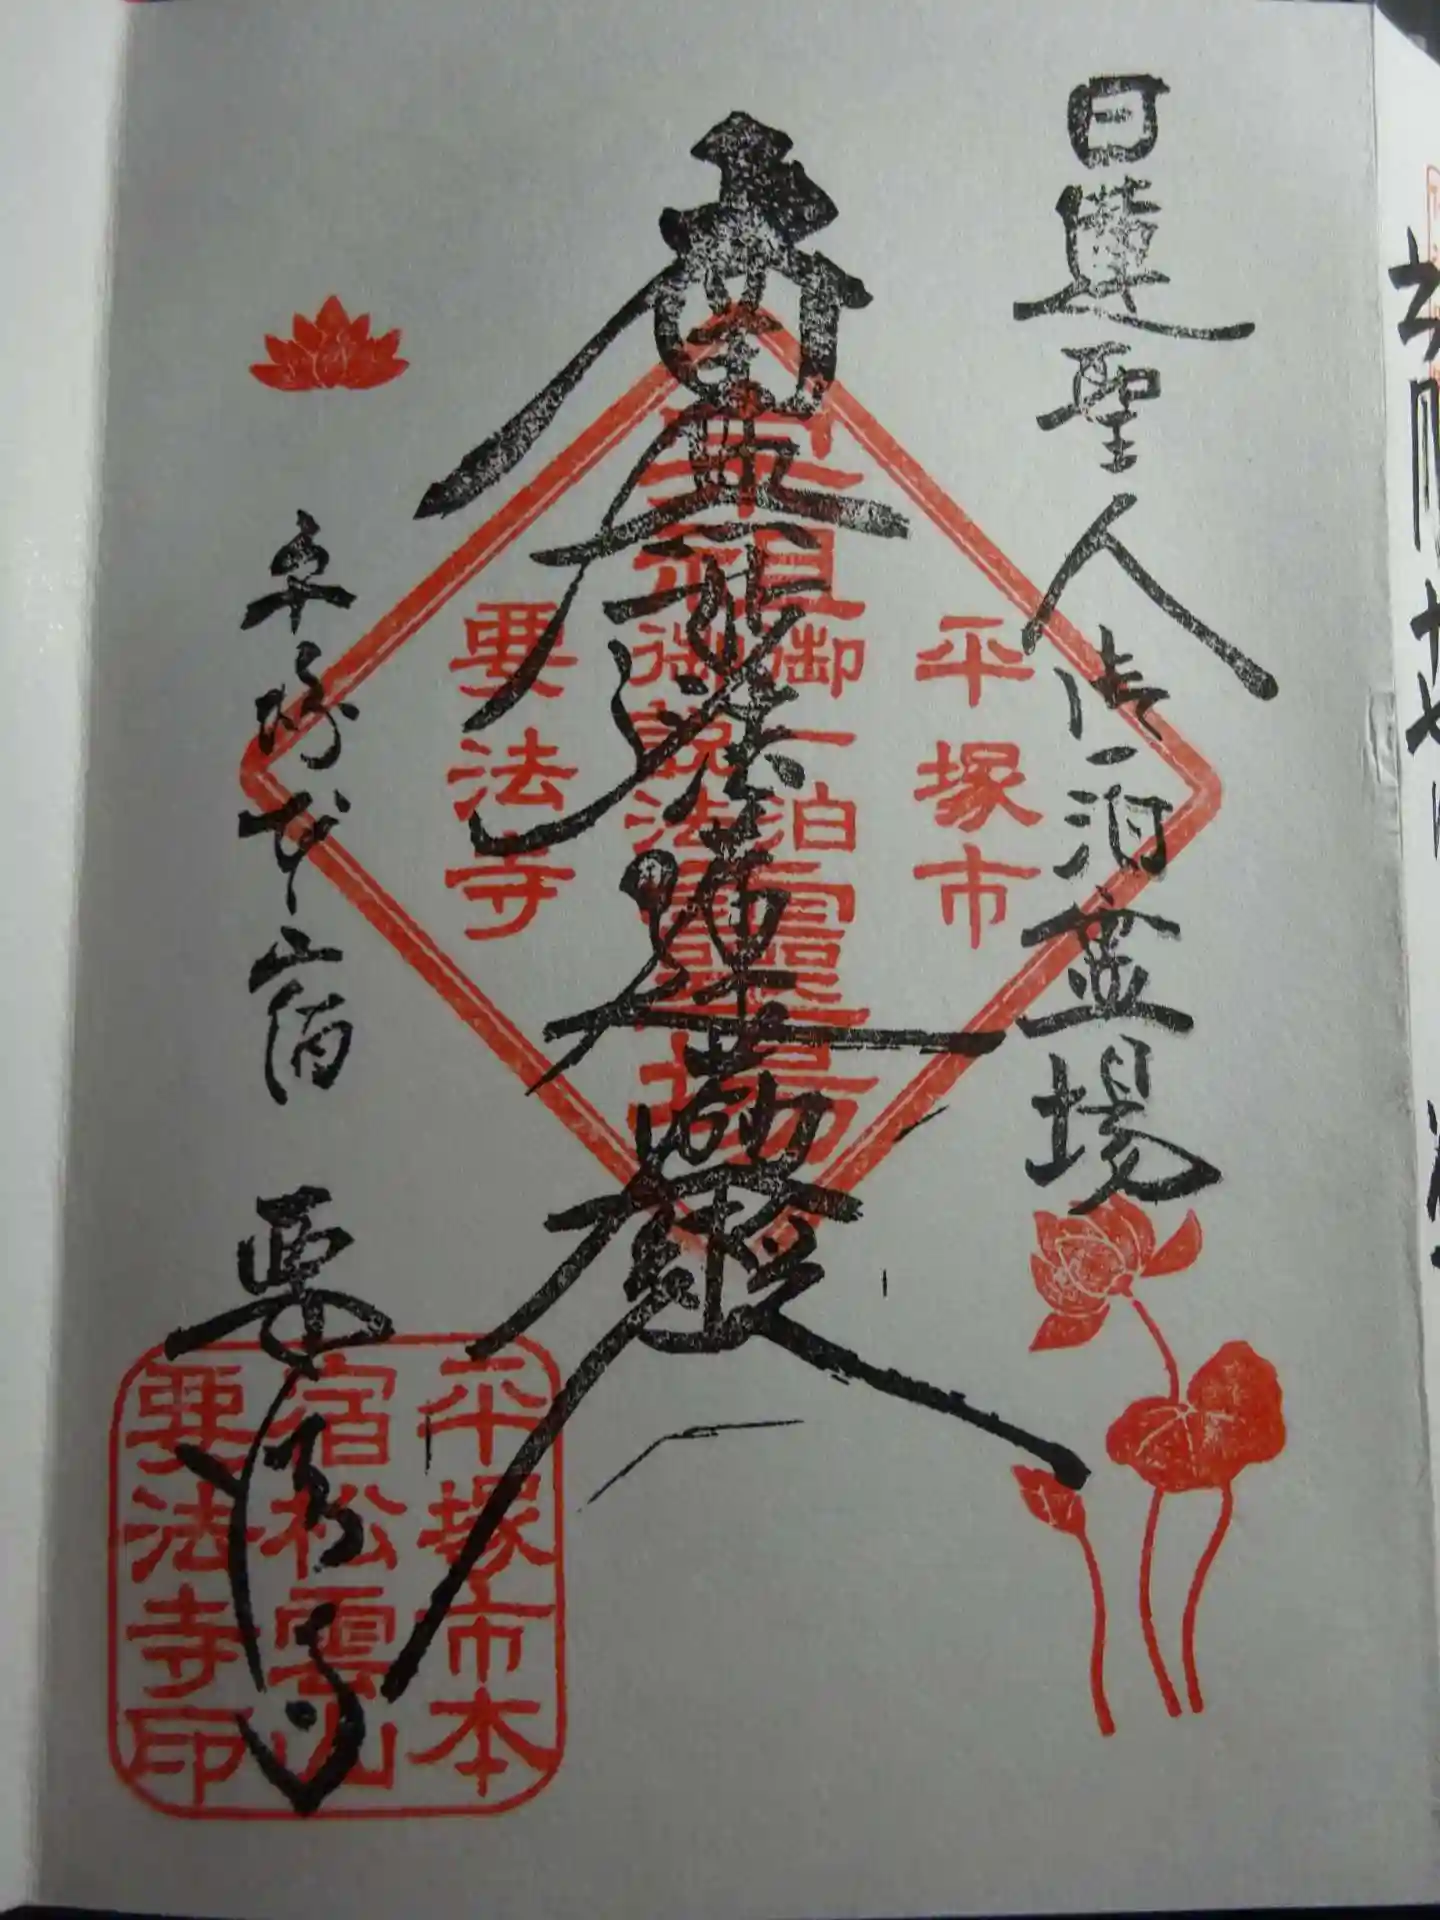 日蓮聖人御一泊霊場
南無妙法蓮華経
平塚本宿
要法寺
平塚市
宗祖御一泊霊場
御説法
要法寺
平塚市本
宿松雲山
要法寺印